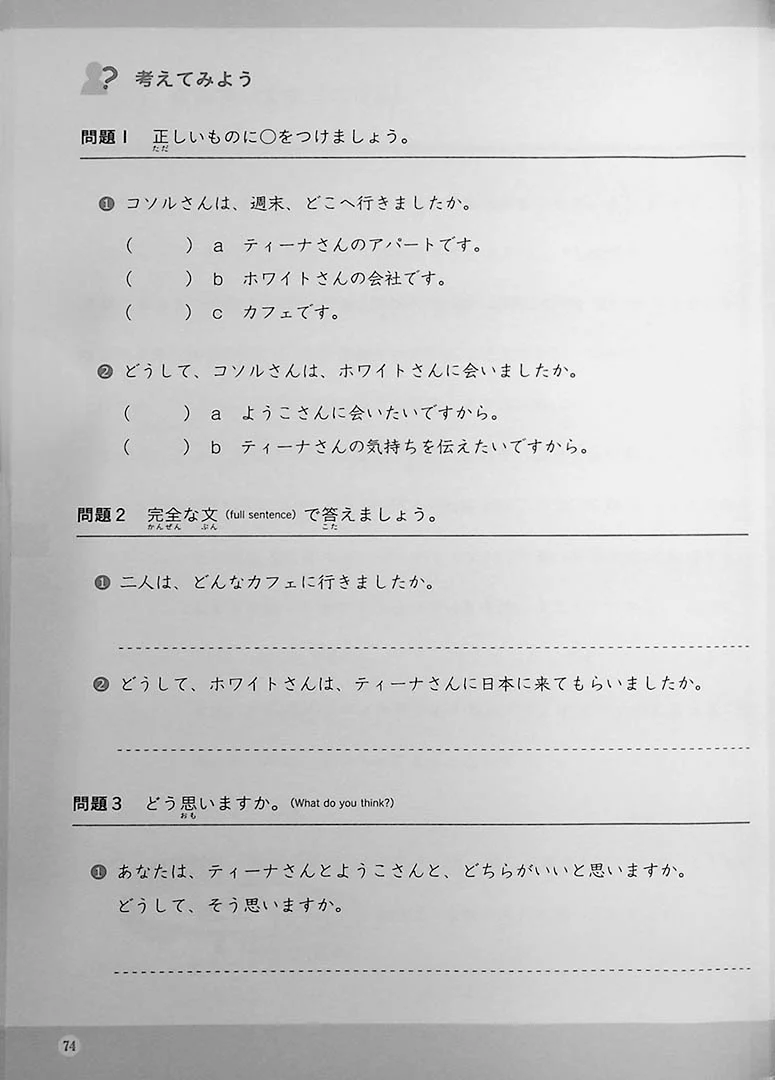 考えてみよう
問題1 正しいものに○をつけましょう。
ただ
❶ コソルさんは、週末、どこへ行きましたか。
( ) a ティーナさんのアパートです。
( ) b ホワイトさんの会社です。
( ) c カフェです。
❷ どうして、コソルさんは、ホワイトさんに会いましたか。
( ) a ようこさんに会いたいですから。
( ) b ティーナさんの気持ちを伝えたいですから。
問題2 完全な文(full sentence)で答えましょう。
かんぜん ぶん こた
❶ 二人は、どんなカフェに行きましたか。
❷ どうして、ホワイトさんは、ティーナさんに日本に来てもらいましたか。
問題3 どう思いますか。(What do you think?)
おも
❶ あなたは、ティーナさんとようこさんと、どちらがいいと思いますか。
どうして、そう思いますか。
74